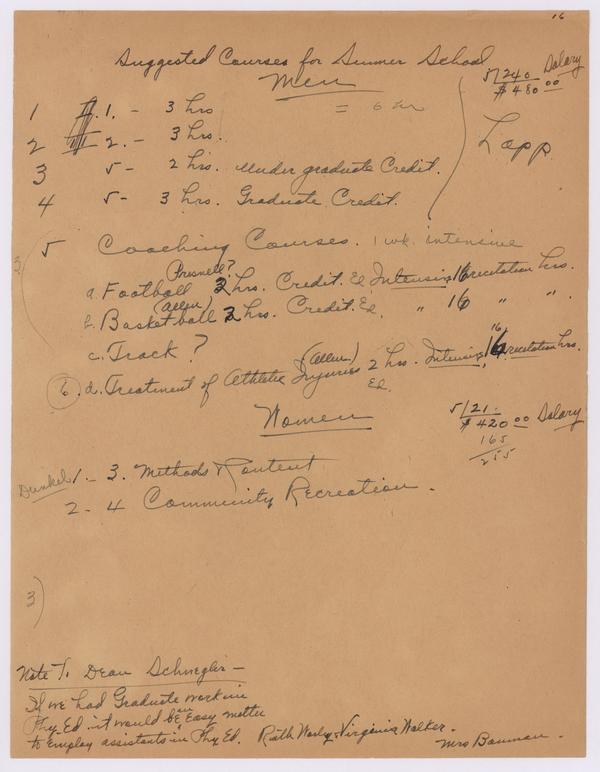 16
Suggested Courses for Summer School
Men
5/240 Salary
$480 00
1 II. 1. - 3 hrs = 6 hr
2 III 2. - 3 hrs.
Lapp
3 5 - 2 hrs. Undergraduate Credit.
4 5 - 3 hrs. Graduate Credit.
5 Coaching Courses. 1 wk. intensive
3
Presnell?
a. Football 2 hrs. Credit. Ed Intensive 16 recitation hrs.
(Allen)
b. Basketball 2 hrs. Credit. Ed. " 16 " "
c. Track?
(Allen) 16
6. d. Treatment of Athletic Injuries 2 hrs. Intensive 16 recitation hrs.
Ed.
Women
5/21. Salary
$420 00
165
255
Dunkel 1 - 3. Methods & Content
2 - 4 Community Recreation -
3)
Note To Dean Schwegler -
If we had Graduate work in
Phy Ed. it would be an Easy matter
to employ assistants in Phy Ed. Ruth Virginia Walker.
Mrs Bauman -